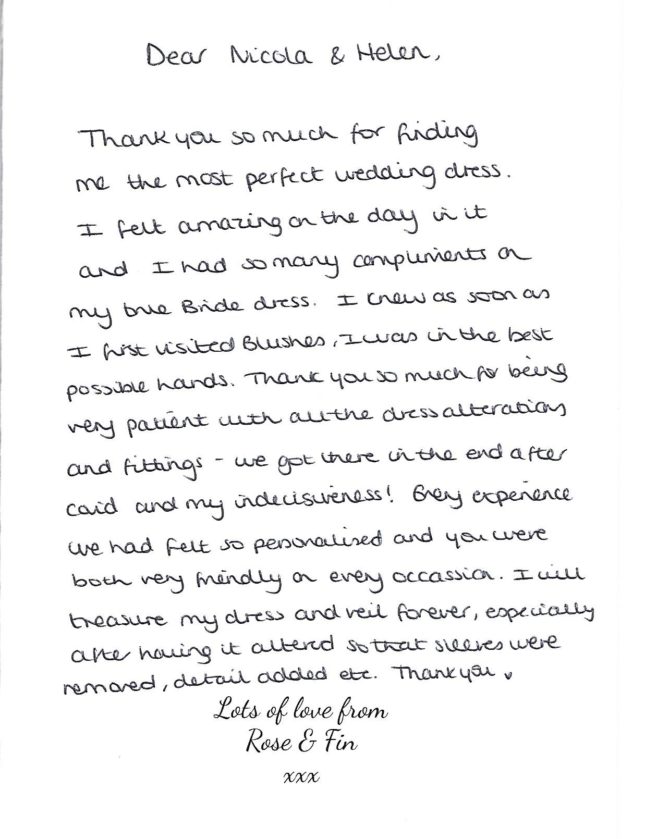 Dear Nicola & Helen,
Thank you so much for finding
me the most perfect wedding dress.
I felt amazing on the day in it
and I had so many compliments on
my true Bride dress. I knew as soon as
I first visited Blushes, I was in the best
possible hands. Thank you so much for being
very patient with all the dress alterations
and fittings - we got there in the end after
covid and my indecisiveness! Every experience
we had felt so personalised and you were
both very friendly on every occassion. I will
treasure my dress and veil forever, especially
after having it altered so that sleeves were
removed, detail added etc. Thank you ♥
Lots of love from
Rose & Fin
xxx